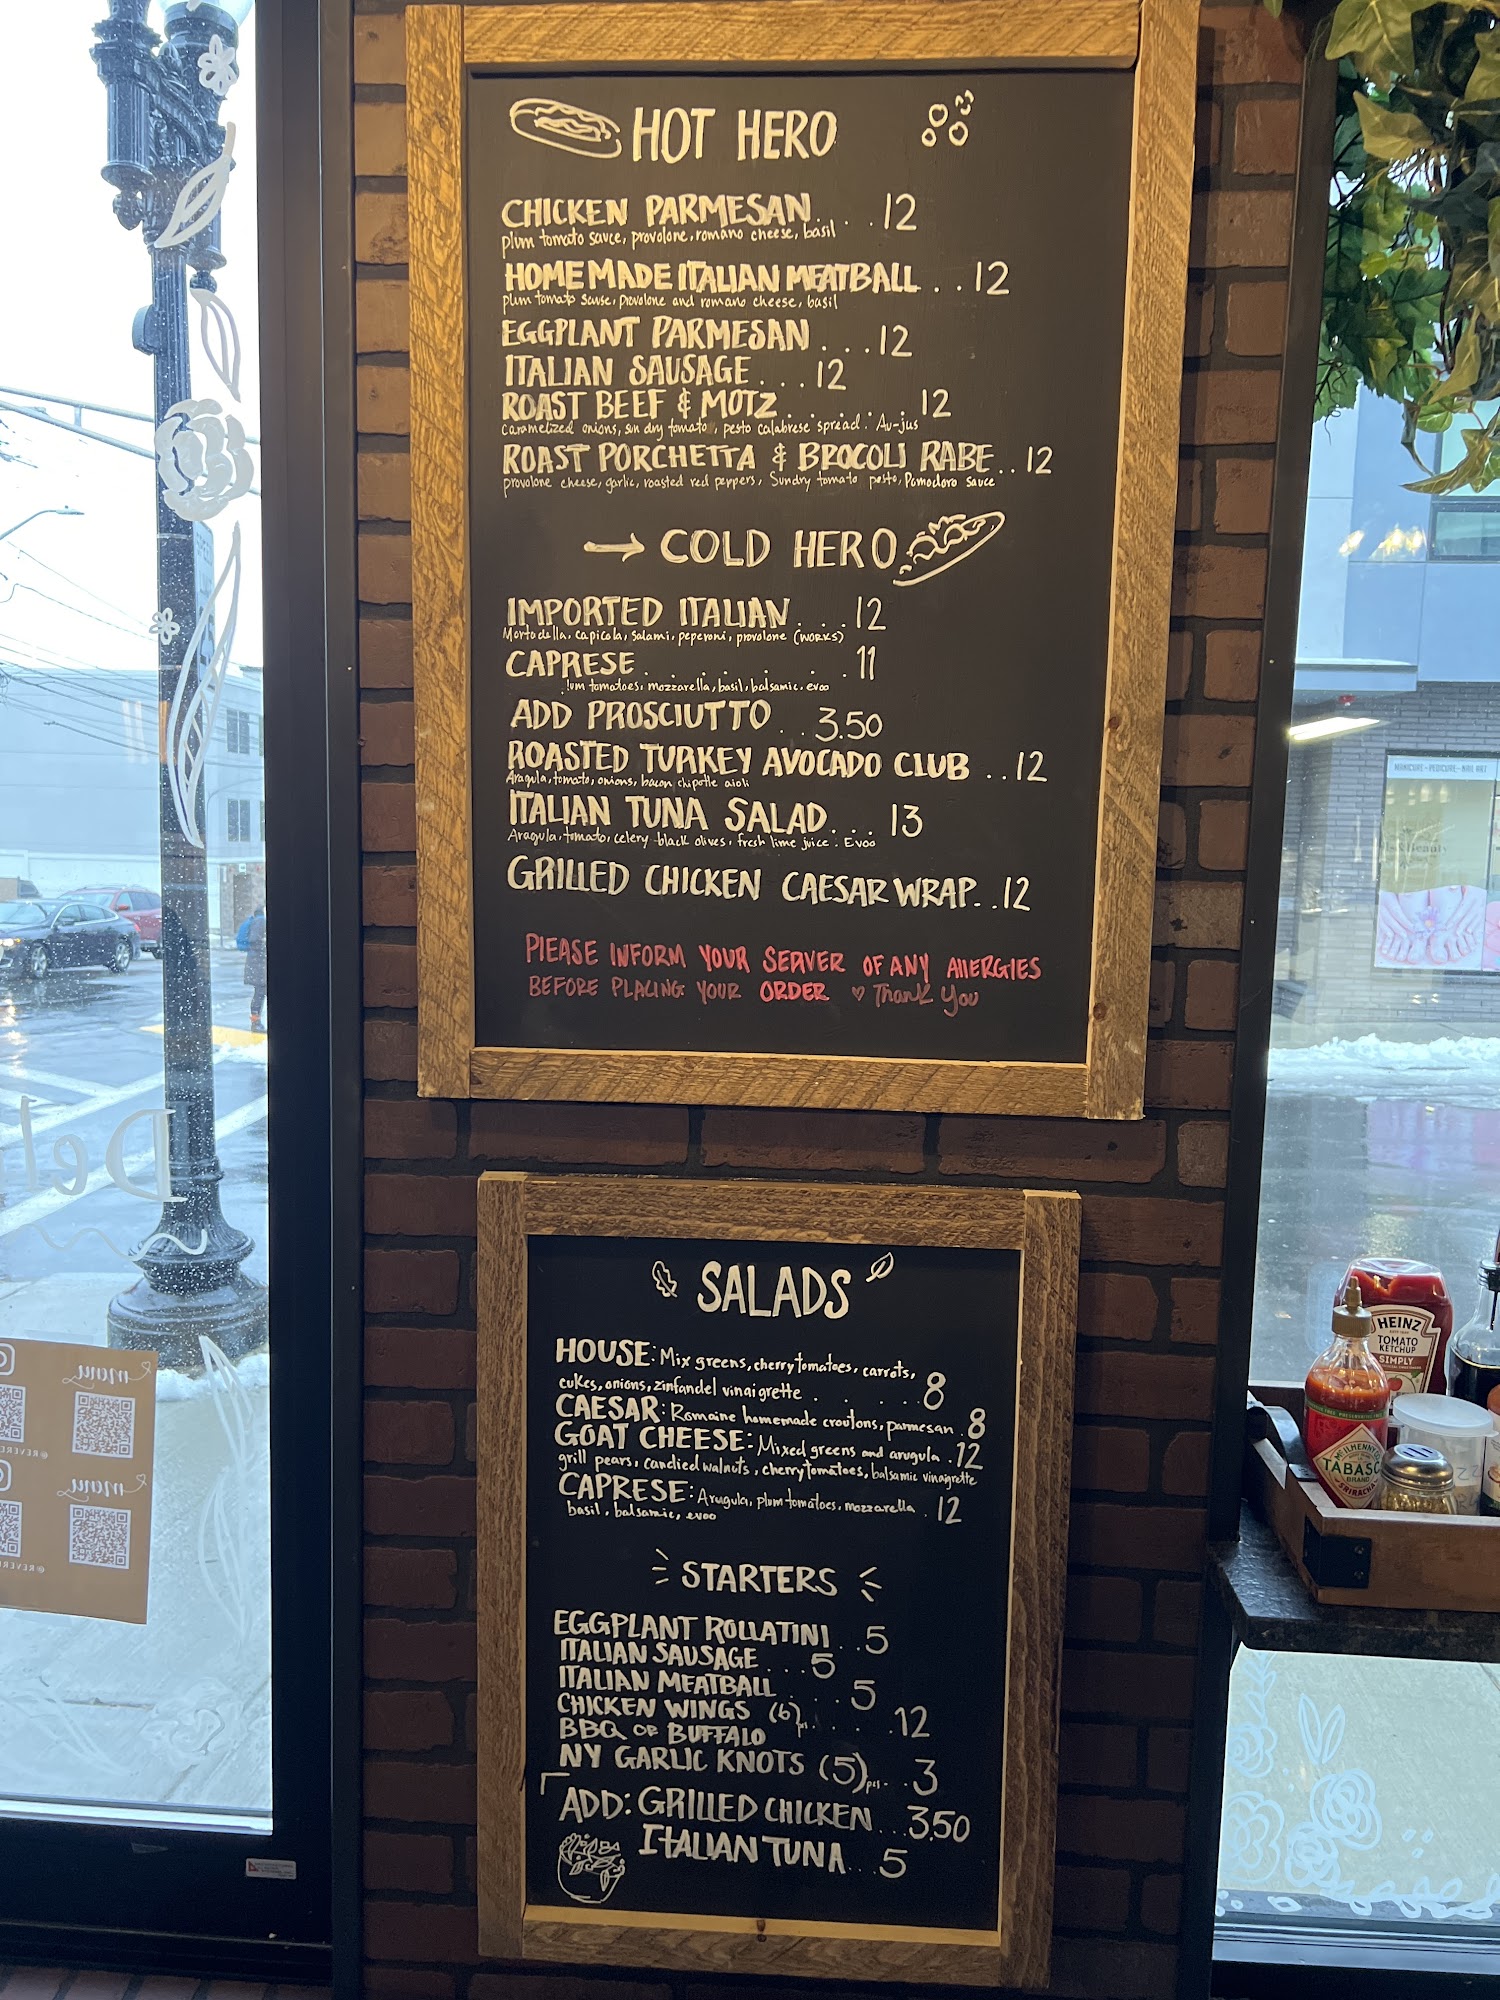 HOT HERO
CHICKEN PARMESAN . . . 12
plum tomato sauce, provolone, romano cheese, basil
HOMEMADE ITALIAN MEATBALL . . 12
plum tomato sause, provolone and romano cheese, basil
EGGPLANT PARMESAN . . . 12
ITALIAN SAUSAGE . . . 12
ROAST BEEF & MOTZ . . . . . 12
caramelized onions, sun dry tomato, pesto calabrese spread. Au-jus
ROAST PORCHETTA & BROCOLI RABE . . 12
provolone cheese, garlic, roasted red peppers, Sundry tomato pesto, Pomodoro sauce
→ COLD HERO
IMPORTED ITALIAN . . . 12
Mortodella, capicola, salami, peperoni, provolone (WORKS)
CAPRESE . . . . . . . 11
lum tomatoes, mozzarella, basil, balsamic, evoo
ADD PROSCIUTTO . . 3.50
ROASTED TURKEY AVOCADO CLUB . . 12
Aragula, tomato, onions, bacon chipotle aioli
ITALIAN TUNA SALAD . . . 13
Aragula, tomato, celery black olives, fresh lime juice. Evoo
GRILLED CHICKEN CAESAR WRAP . . 12
PLEASE INFORM YOUR SERVER OF ANY AllERGIES
BEFORE PLACING YOUR ORDER ♡ Thank You
SALADS
HOUSE: Mix greens, cherry tomatoes, carrots,
cukes, onions, zinfandel vinaigrette . . . . 8
CAESAR: Romaine homemade croutons, parmesan . 8
GOAT CHEESE: Mixed greens and arugula . 12
grill pears, candied walnuts, cherry tomatoes, balsamic vinaigrette
CAPRESE: Arugula, plum tomatoes, mozzarella . 12
basil, balsamic, evoo
STARTERS
EGGPLANT ROLLATINI . . 5
ITALIAN SAUSAGE . . . 5
ITALIAN MEATBALL . . . 5
CHICKEN WINGS (6) ps . . . 12
BBQ OR BUFFALO
NY GARLIC KNOTS (5) pcs . . 3
ADD: GRILLED CHICKEN . . . 3.50
ITALIAN TUNA . . . 5
MANICURE - PEDICURE - NAIL ART
Beauty
HEINZ
TOMATO
KETCHUP
SIMPLY
TABASC
BRAND
SRIRACHA
menu
menu